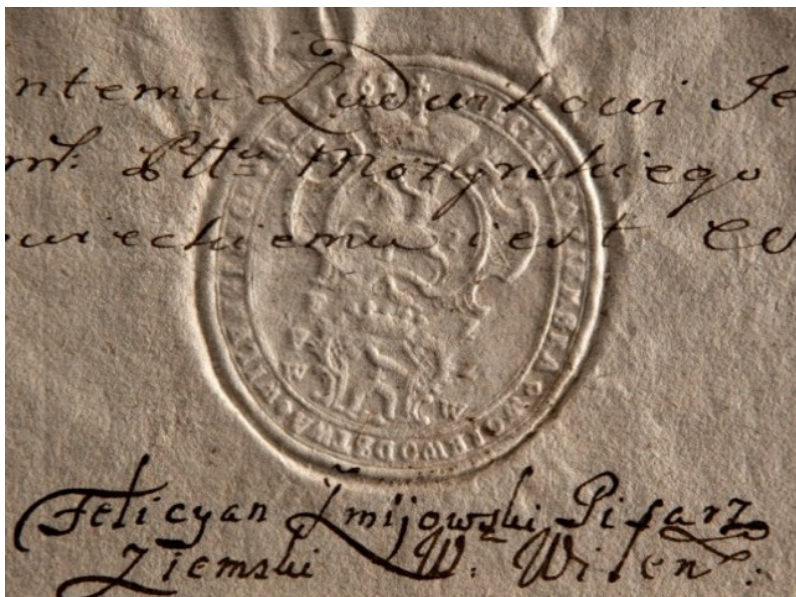 ntemu Ludwikowi Je
Ptta Mozyrskiego
owieckiemu iest
WOJEWODZTWA
Felicyan Żmijowski Pisarz
Ziemski W. Wilen: